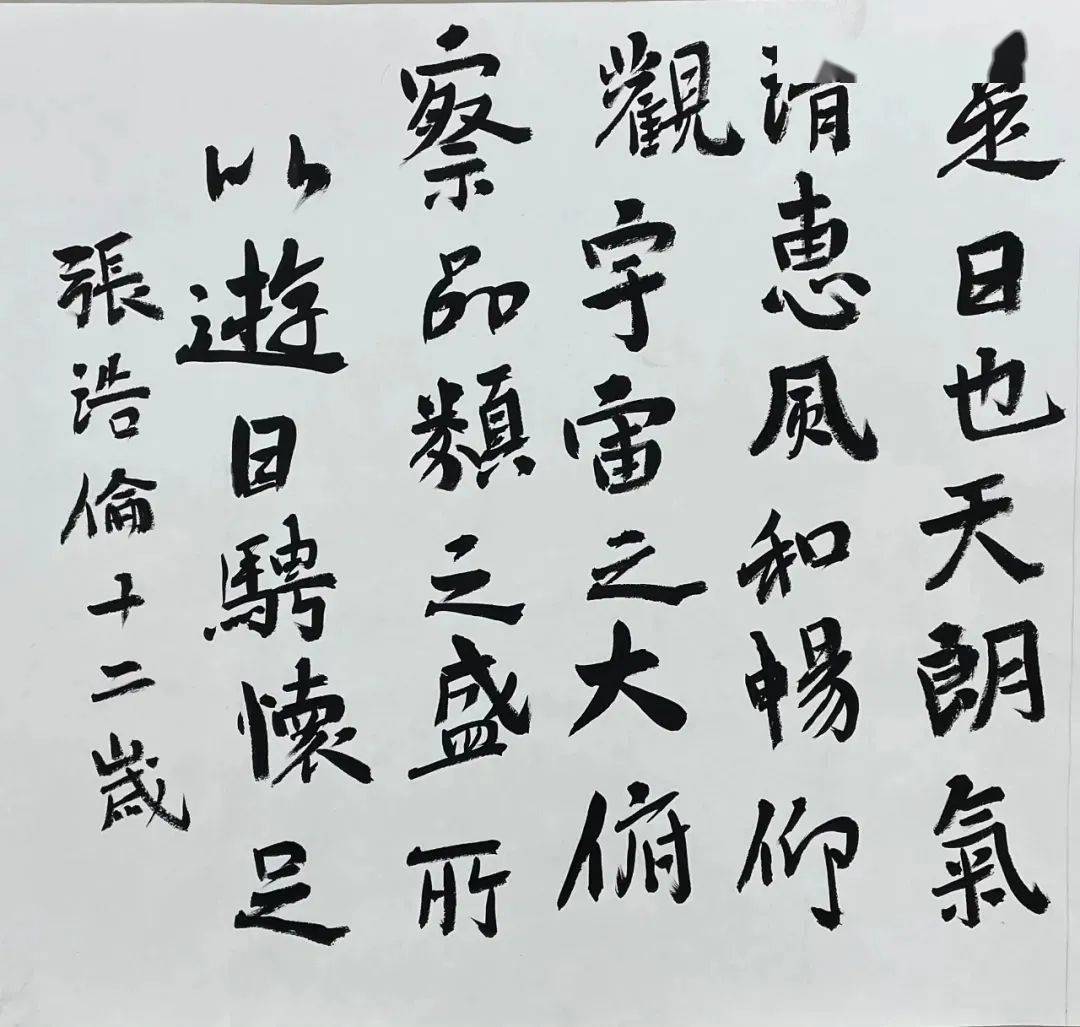 是日也天朗氣
清惠風和暢仰
觀宇宙之大俯
察品類之盛所
以遊目騁懷足
張浩倫十二歲